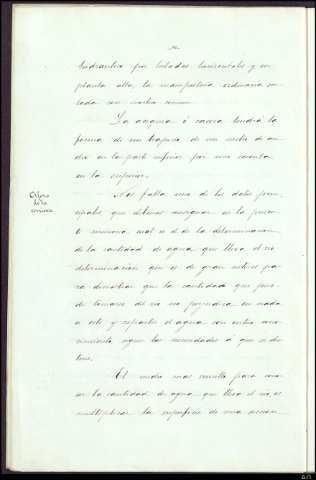 hidraulica por hiladas horizontales y en
planta alta, la mamposteria ordinaria
con mortero comun.
La acequia ó caz tendrá la
forma de un trapecio de un metro de an-
cho en la parte inferior por uno cuenta
en la superior.
Nos falta uno de los datos prin-
cipales que debemos consignar en la presen-
te memoria cual es el de la determinacion
de la cantidad de agua que lleva el rio
determinacion que es de gran interes pa-
ra demostrar que la cantidad que pue-
de tomarse del rio no perjudica en nada
a este y repartir el agua con entero cono-
cimiento segun las necesidades á que se des-
tine.
El medio mas sencillo para
la cantidad de agua que lleva el rio, es
multiplicar la superficie de una seccion
de la